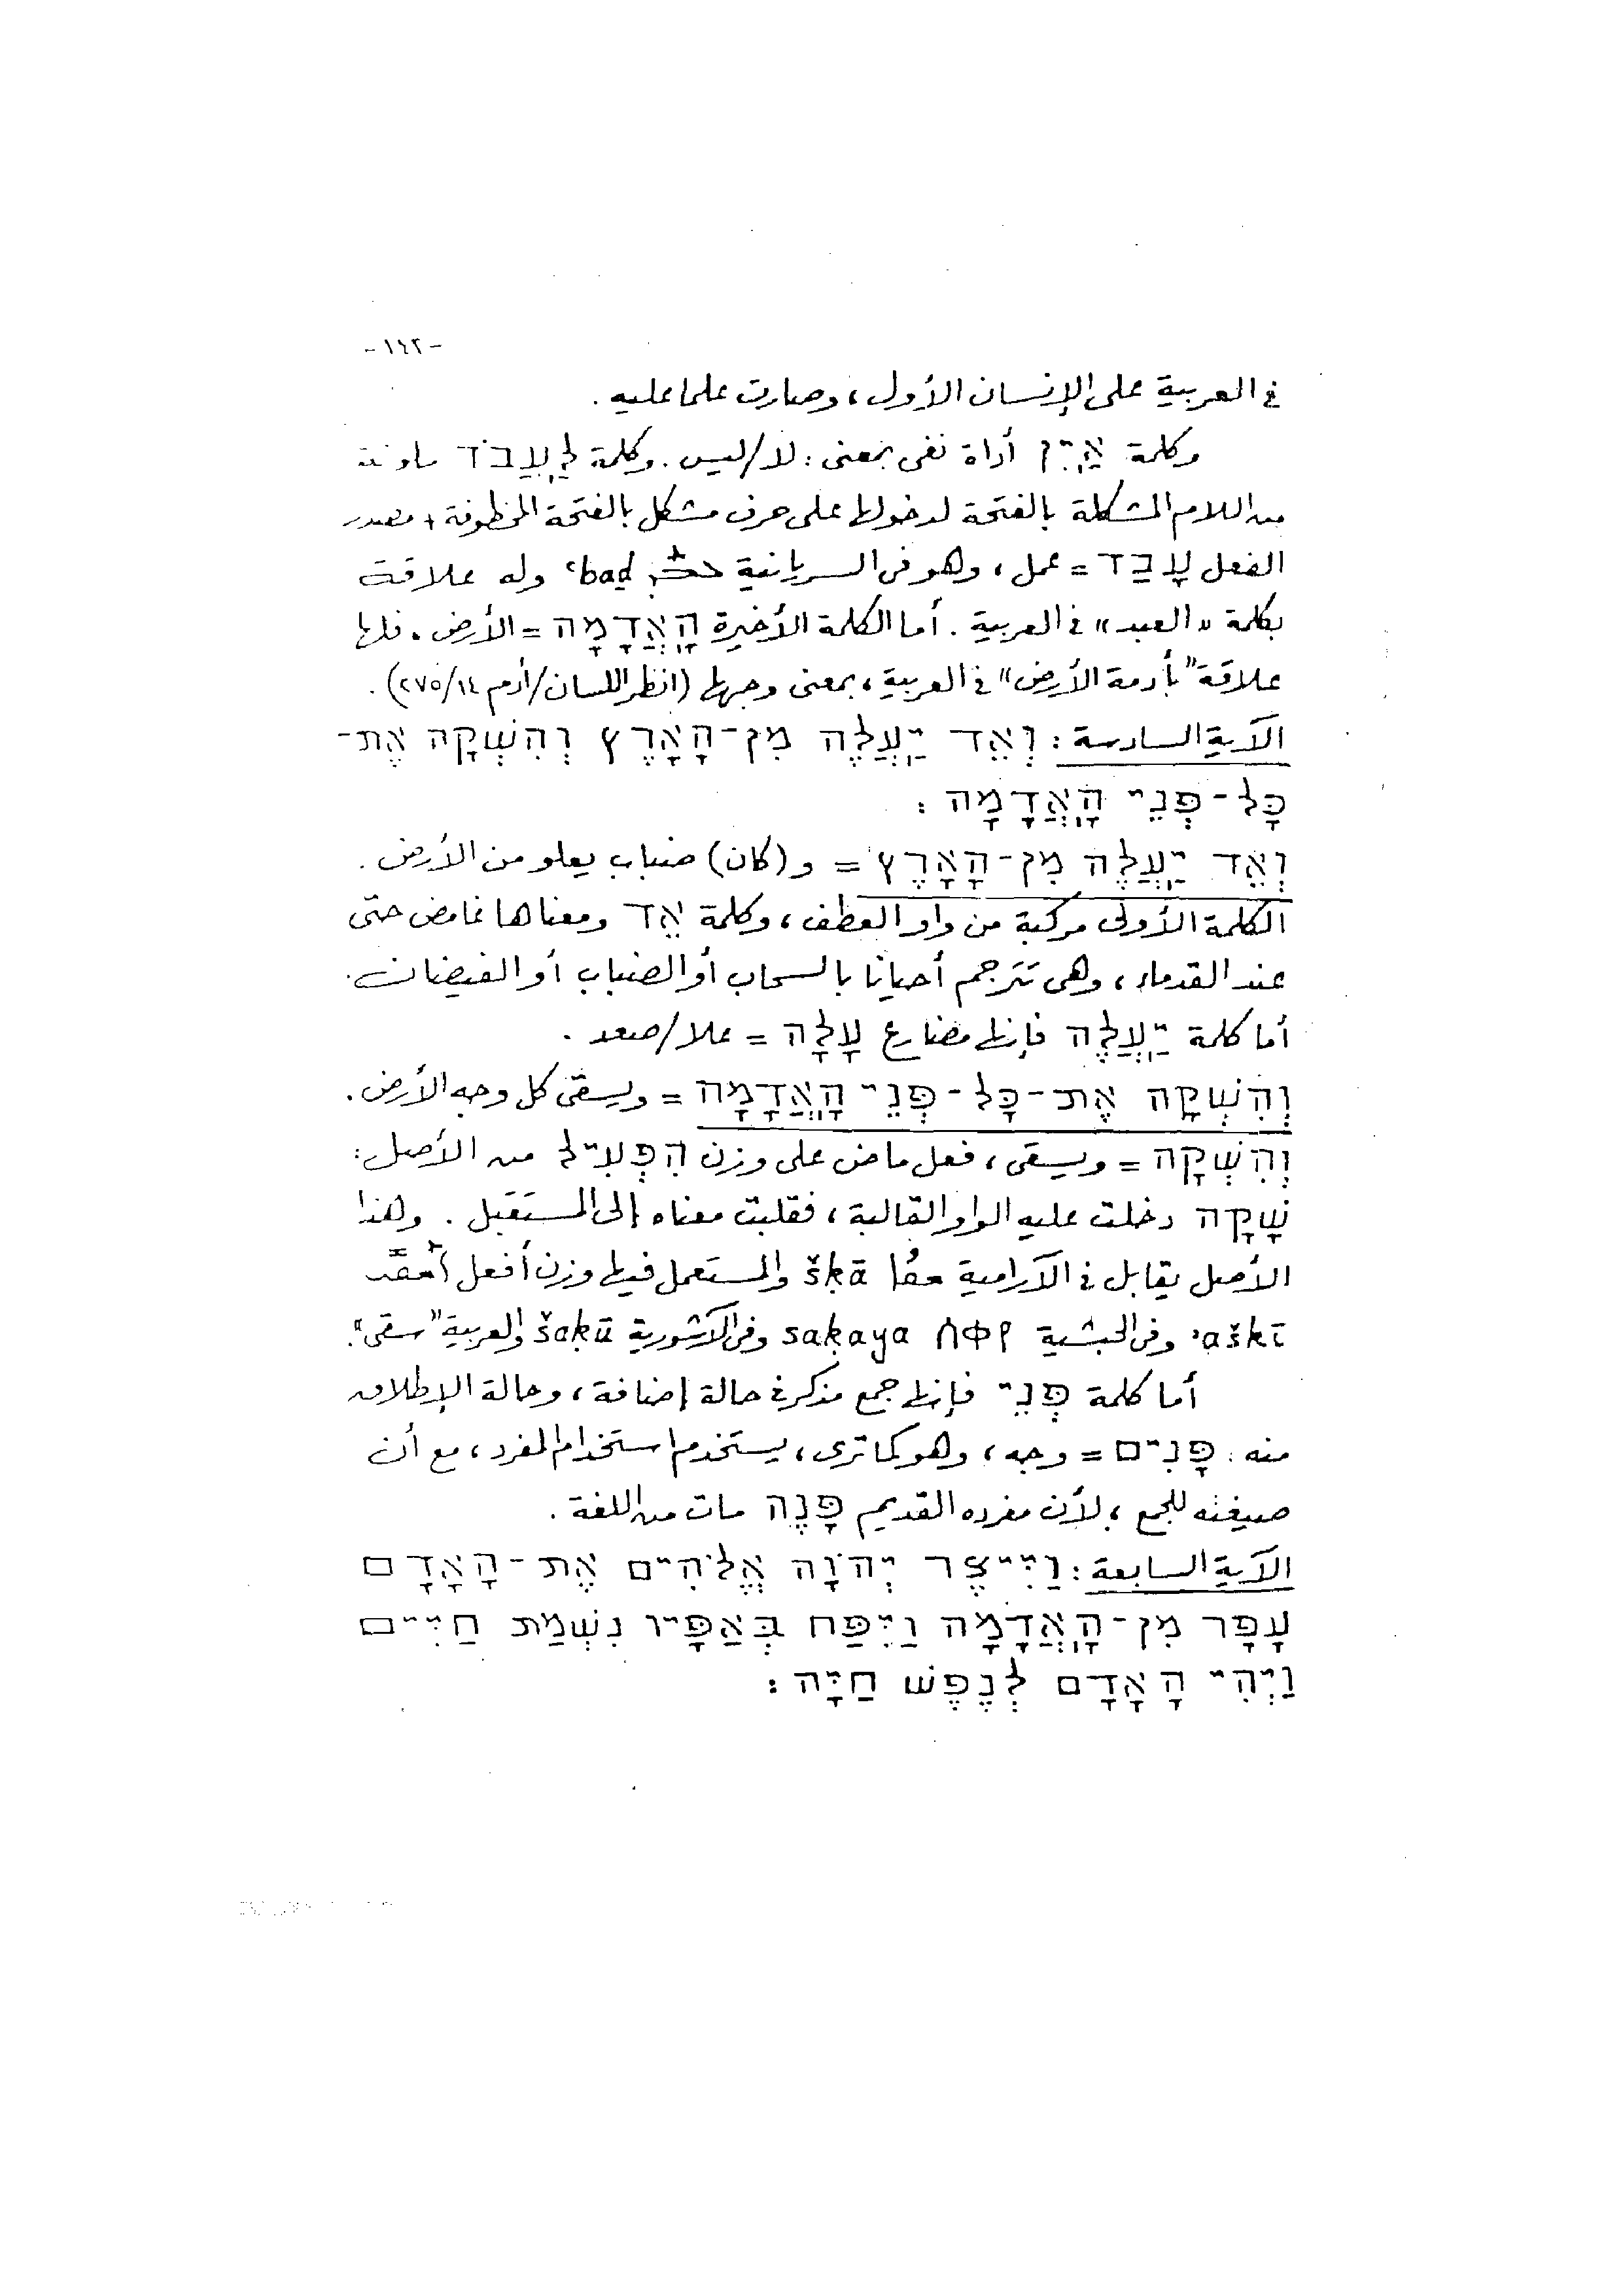 -١٤٢-
في العربية على الإنسان الأول، وصارت علما عليه.
وكلمة אַיִן أداة نفى بمعنى: لا/ليس. وكلمة לַעֲבֹד
من اللام المشكلة بالفتحة لدخولها على حرف مشكل بالفتحة المخطوفة + مصدر
الفعل עָבַד = عمل، وهو فى السريانية ܥܒܰܕ ʿbad وله علاقة
بكلمة «العبد» في العربية. أما الكلمة الأخيرة הָאֲדָמָה = الأرض. فلها
علاقة "بأدمة الأرض" في العربية، بمعنى وجهها (انظر اللسان/أدم ٢٧٥/١٤).
الآية السادسة: וְאֵד יַעֲלֶה מִן-הָאָרֶץ וְהִשְׁקָה אֶת-
כָּל-פְּנֵי הָאֲדָמָה:
וְאֵד יַעֲלֶה מִן-הָאָרֶץ = و(كان) ضباب يعلو من الأرض.
الكلمة الأولى مركبة من واو العطف، وكلمة אֵד ومعناها غامض حتى
عند القدماء، وهى تترجم أحيانا بالسحاب أو الضباب أو الفيضان.
أما كلمة יַעֲלֶה فإنها مضارع עָלָה = علا/صعد.
וְהִשְׁקָה אֶת-כָּל-פְּנֵי הָאֲדָמָה = ويسقى كل وجه الأرض.
וְהִשְׁקָה = ويسقى، فعل ماض على وزن הִפְעִיל من الأصل:
שָׁקָה دخلت عليه الواو القالبة، فقلبت معناه إلى المستقبل. وهذا
الأصل يقابل في الآرامية ܫܩܳܐ šḳā والمستعمل فيها وزن أفعل ܐܰܫܩܺܝ
ʾašḳī وفى الحبشية ሰቀየ saḳaya وفى الآشورية šaḳū والعربية "سقى".
أما كلمة פְּנֵי فإنها جمع مذكر في حالة إضافة، وحالة الإطلاق
منه: פָּנִים = وجه، وهو كما ترى، يستخدم استخدام المفرد، مع أن
صيغته للجمع؛ لأن مفرده القديم פָּנֶה مات من اللغة.
الآية السابعة: וַיִּיצֶר יְהֹוָה אֱלֹהִים אֶת-הָאָדָם
עָפָר מִן-הָאֲדָמָה וַיִּפַּח בְּאַפָּיו נִשְׁמַת חַיִּים
וַיְהִי הָאָדָם לְנֶפֶשׁ חַיָּה: